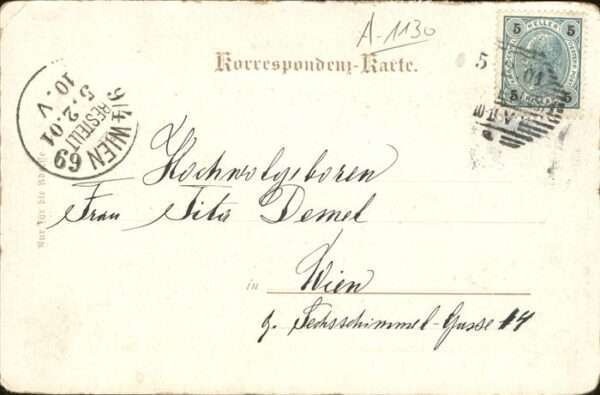 A-1130
5 5
HELLER
5 5
Korrespondenz-Karte.
5 01
9/4 WIEN 69
BESTELLT
5.2.01
10.V
Hochwolgeboren
Frau Tita Demel
in Wien
9. Sechsschimmel-Gasse 14
Nur für die Adresse